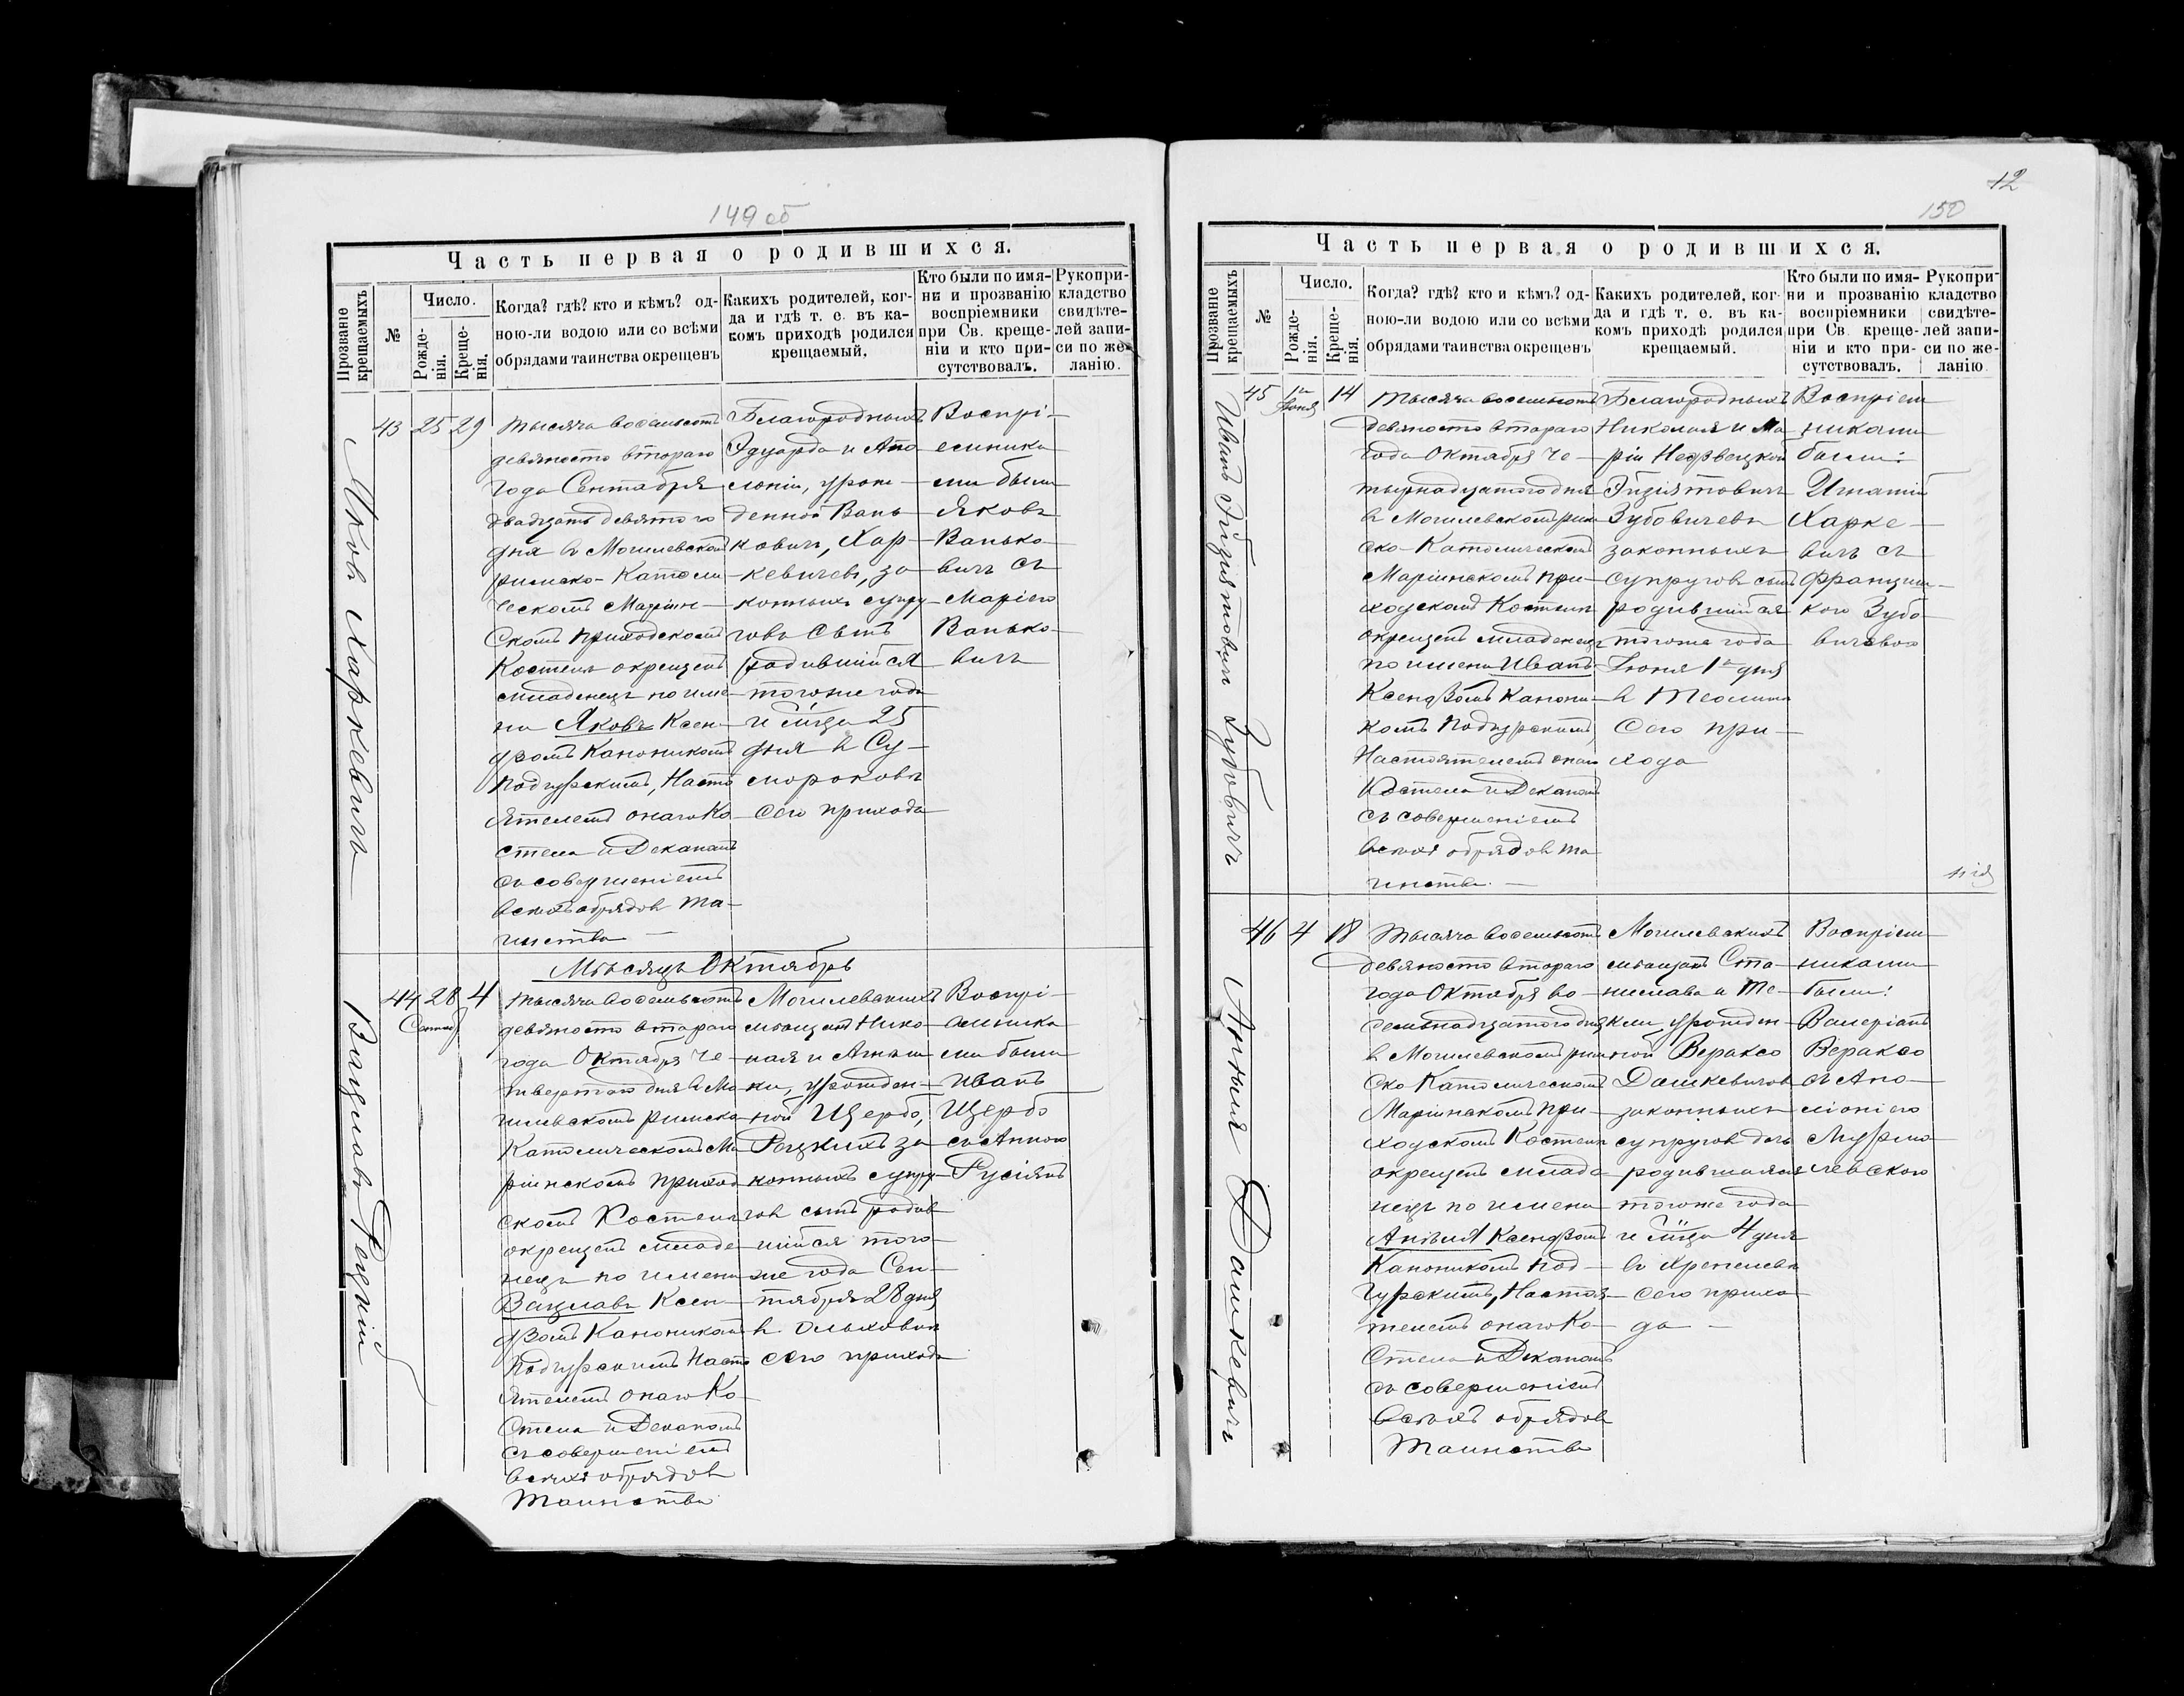 149 об
Часть первая о родившихся.
Прозваніе крещаемыхъ
№
Число.
Рожде-нія.
Креще-нія.
Когда? гдѣ? кто и кѣмъ? од-
ною-ли водою или со всѣми
обрядами таинства окрещенъ
Какихъ родителей, ког-
да и гдѣ т. е. въ ка-
комъ приходѣ родился
крещаемый.
Кто были по имя-
ни и прозванію
воспріемники
при Св. креще-
ніи и кто при-
сутствовалъ.
Рукопри-
кладство
свидѣте-
лей запи-
си по же-
ланію.
Яковъ Харкевичъ
43 25 29
Тысяча восемьсотъ
девяносто втораго
года Сентября
двадцать девятого
дня въ Могилевской
римско-Католи
ческомъ Маріин-
скомъ приходскомъ
Костелѣ окрещенъ
младенецъ по име
ни Яковъ Ксен-
дзомъ Каноникомъ
Подгурскимъ, Насто
ятелемъ онаго Ко-
стела и Деканомъ
съ совершеніемъ
всѣхъ обрядовъ та-
инства
Благородныхъ
Эдуарда и Апо
лоніи, урож-
денной Вань
ковичъ, Хар-
кевичевъ, за-
конныхъ супру-
говъ сынъ
родившійся
тогоже года
и м-ца 25
дня въ Су-
мороковѣ
сего прихода
Воспрі-
емника
ми были
Яковъ
Ванько-
вичъ съ
Маріею
Ванько-
вичъ
Мѣсяцъ Октябрь
Вацлавъ Рецкій
44 28 4
Сентяб
Тысяча восемьсотъ
девяносто втораго
года Октября че-
твертаго дня въ Мо
гилевскомъ римско
Католическомъ Ма
ріинскомъ приход
скомъ Костелѣ
окрещенъ младе-
нецъ по имени
Вацлавъ Ксен-
дзомъ Каноникомъ
Подгурскимъ Насто
ятелемъ онаго Ко-
стела и Деканомъ
съ совершеніемъ
всѣхъ обрядовъ
Таинства
Могилевскихъ
мѣщанъ Нико-
лая и Агнеш
ки, урожден-
ной Щербо,
Рецкихъ за
конныхъ супру-
говъ сынъ родив
шійся того-
же года Сен-
тября 28 дня
въ Ольховкѣ
сего прихода
Воспрі-
емника
ми были
Иванъ
Щербо
съ Анною
Русіянъ
12
150
Часть первая о родившихся.
Прозваніе крещаемыхъ
№
Число.
Рожде-нія.
Креще-нія.
Когда? гдѣ? кто и кѣмъ? од-
ною-ли водою или со всѣми
обрядами таинства окрещенъ
Какихъ родителей, ког-
да и гдѣ т. е. въ ка-
комъ приходѣ родился
крещаемый.
Кто были по имя-
ни и прозванію
воспріемники
при Св. креще-
ніи и кто при-
сутствовалъ.
Рукопри-
кладство
свидѣте-
лей запи-
си по же-
ланію
Иванъ Зубовичъ
45 1го Іюня 14
Тысяча восемьсотъ
девяносто втораго
года Октября че-
тырнадцатого дня
въ Могилевскомъ рим
ско-Католическомъ
Маріинскомъ при-
ходскомъ Костелѣ
окрещенъ младенецъ
по имени Иванъ
Ксендзомъ Канони-
комъ Подгурскимъ,
Настоятелемъ онаго
Костела и Деканомъ
съ совершеніемъ
всѣхъ обрядовъ та
инства.
Благородныхъ
Николая и Ма
ріи
Зубовичевъ
законныхъ
супруговъ сынъ
родившійся
тогоже года
Іюня 1го дня
въ
сего при-
хода
Воспріем
никами
были:
Игнатій
Харке-
вичъ съ
Францишкою
Зубо-
вичевою
Дашкевичъ
46 4 18
Тысяча восемьсотъ
девяносто втораго
года Октября во-
семьнадцатого дня
въ Могилевскомъ рим
ско Католическомъ
Маріинскомъ при-
ходскомъ Костелѣ
окрещенъ млад
нецъ по имени
Аніеля Ксендзомъ
Каноникомъ Под-
гурскимъ, Настоя-
телемъ онаго Ко-
стела и Деканомъ
съ совершеніемъ
всѣхъ обрядовъ
Таинства
Могилевскихъ
мѣщанъ Ста-
нислава и Те-
кли урожден-
ной Вераксо
Дашкевичевъ
законныхъ
супруговъ дочь
родившаяся
тогоже года
и м-ца 4 дня
въ
сего прихо-
да
Воспріем
никами
были:
Валеріанъ
Вераксо
съ Апо-
лоніею